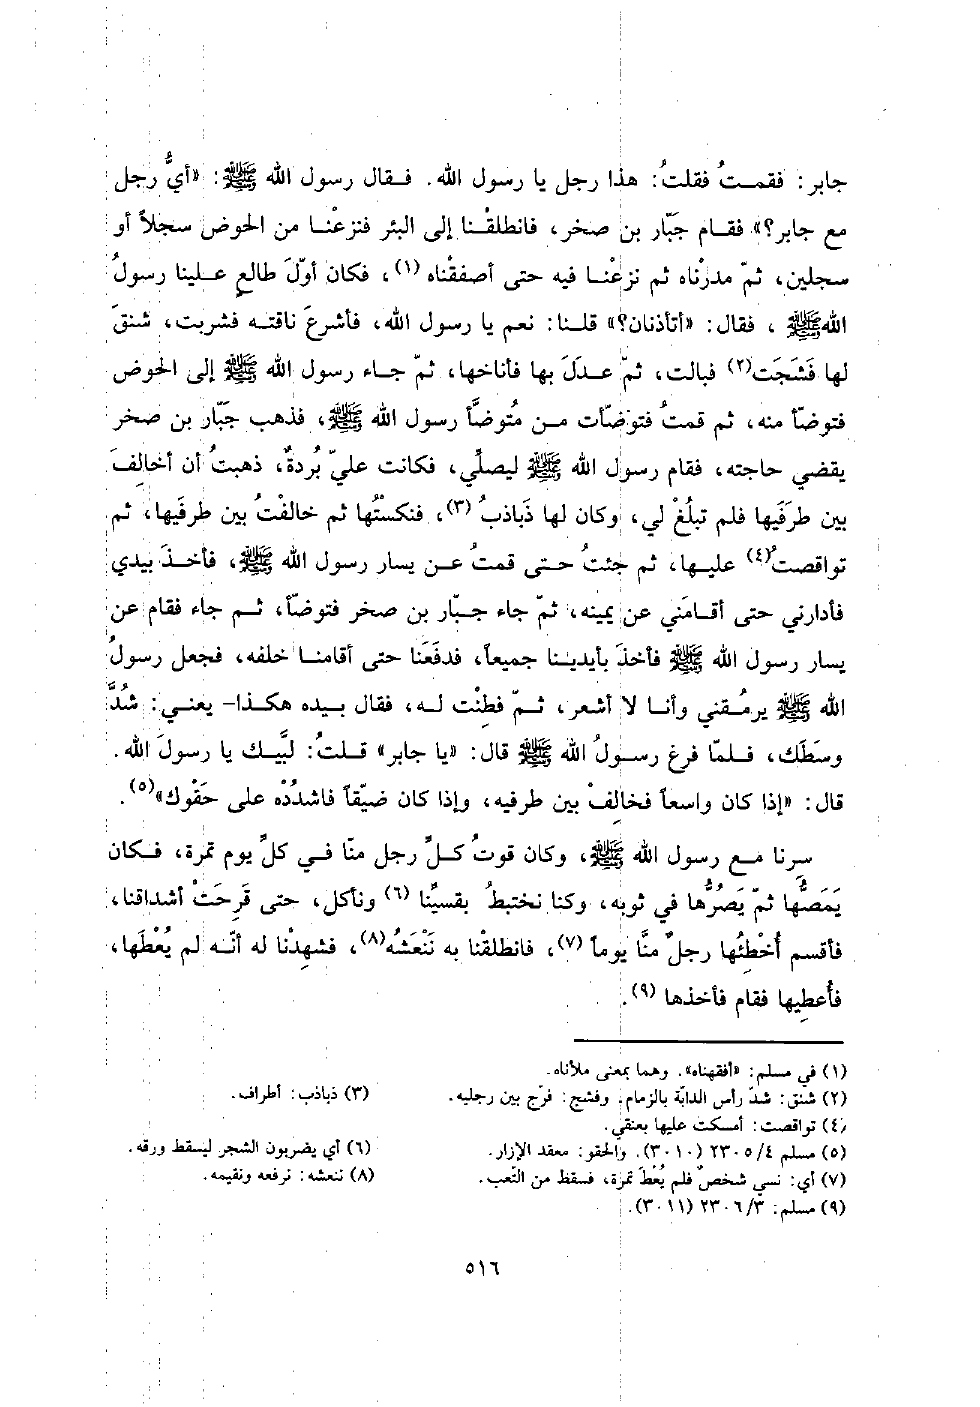 جابر: فقمتُ فقلتُ: هذا رجل يا رسول الله. فقال رسول الله ﷺ: «أيُّ رجل
مع جابر؟» فقام جَبّار بن صخر، فانطلقْنا إلى البئر فنزعْنا من الحوض سجلاً أو
سجلين، ثمّ مدرْناه ثم نزعْنا فيه حتى أصفقْناه (١)، فكان أوّلَ طالعٍ علينا رسولُ
الله ﷺ ، فقال: «أتأذنان؟» قلنا: نعم يا رسول الله، فأشرعَ ناقته فشربت، شنقَ
لها فَشَجَت(٢) فبالت، ثمّ عدلَ بها فأناخها، ثمّ جاء رسول الله ﷺ إلى الحوض
فتوضّأ منه، ثم قمتُ فتوضّأت من مُتوضَّأ رسول الله ﷺ، فذهب جَبّار بن صخر
يقضي حاجته، فقام رسول الله ﷺ ليصلّي، فكانت عليّ بُردةٌ، ذهبتُ أن أخالِفَ
بين طرَفَيها فلم تبلُغْ لي، وكان لها ذَباذبُ (٣)، فنكستُها ثم خالفْتُ بين طرفيها، ثم
تواقصتُ(٤) عليها، ثم جئتُ حتى قمتُ عن يسار رسول الله ﷺ، فأخذَ بيدي
فأدارني حتى أقامَني عن يمينه، ثمّ جاء جبّار بن صخر فتوضّأ، ثم جاء فقام عن
يسار رسول الله ﷺ فأخذَ بأيدينا جميعاً، فدفَعَنا حتى أقامنا خلفه، فجعل رسولُ
الله ﷺ يرمُقني وأنا لا أشعر، ثمّ فطِنْت له، فقال بيده هكذا- يعني: شُدَّ
وسَطَك، فلمّا فرغ رسولُ الله ﷺ قال: «يا جابر» قلتُ: لبَّيك يا رسولَ الله.
قال: «إذا كان واسعاً فخالِفْ بين طرفيه، وإذا كان ضيّقاً فاشدُدْه على حَقْوك»(٥).
سِرنا مع رسول الله ﷺ، وكان قوتُ كلِّ رجل منّا في كلِّ يوم تمرة، فكان
يَمَصُّها ثمّ يَصُرُّها في ثوبه، وكنا نختبطُ بقسيِّنا (٦) ونأكل، حتى قَرِحَتْ أشداقنا،
فأقسم أُخْطِئُها رجلٌ منَّا يوماً (٧)، فانطلقْنا به نَنْعَشُه(٨)، فشهِدْنا له أنّه لم يُعْطَها،
فأُعطِيها فقام فأخذها (٩).
(١) في مسلم: «أفقهناه». وهما بمعنى ملأناه.
(٢) شنق: شدّ رأس الدابّة بالزمام. وفشج: فرّج بين رجليه. (٣) ذباذب: أطراف.
(٤) تواقصت: أمسكت عليها بعنقي.
(٥) مسلم ٢٣٠٥/٤ (٣٠١٠). والحقو: معقد الإزار. (٦) أي يضربون الشجر ليسقط ورقه.
(٧) أي: نسي شخصٌ فلم يُعْطَ تمرة، فسقط من التّعب. (٨) ننعشه: نرفعه ونقيمه.
(٩) مسلم: ٢٣٠٦/٣ (٣٠١١).
٥١٦